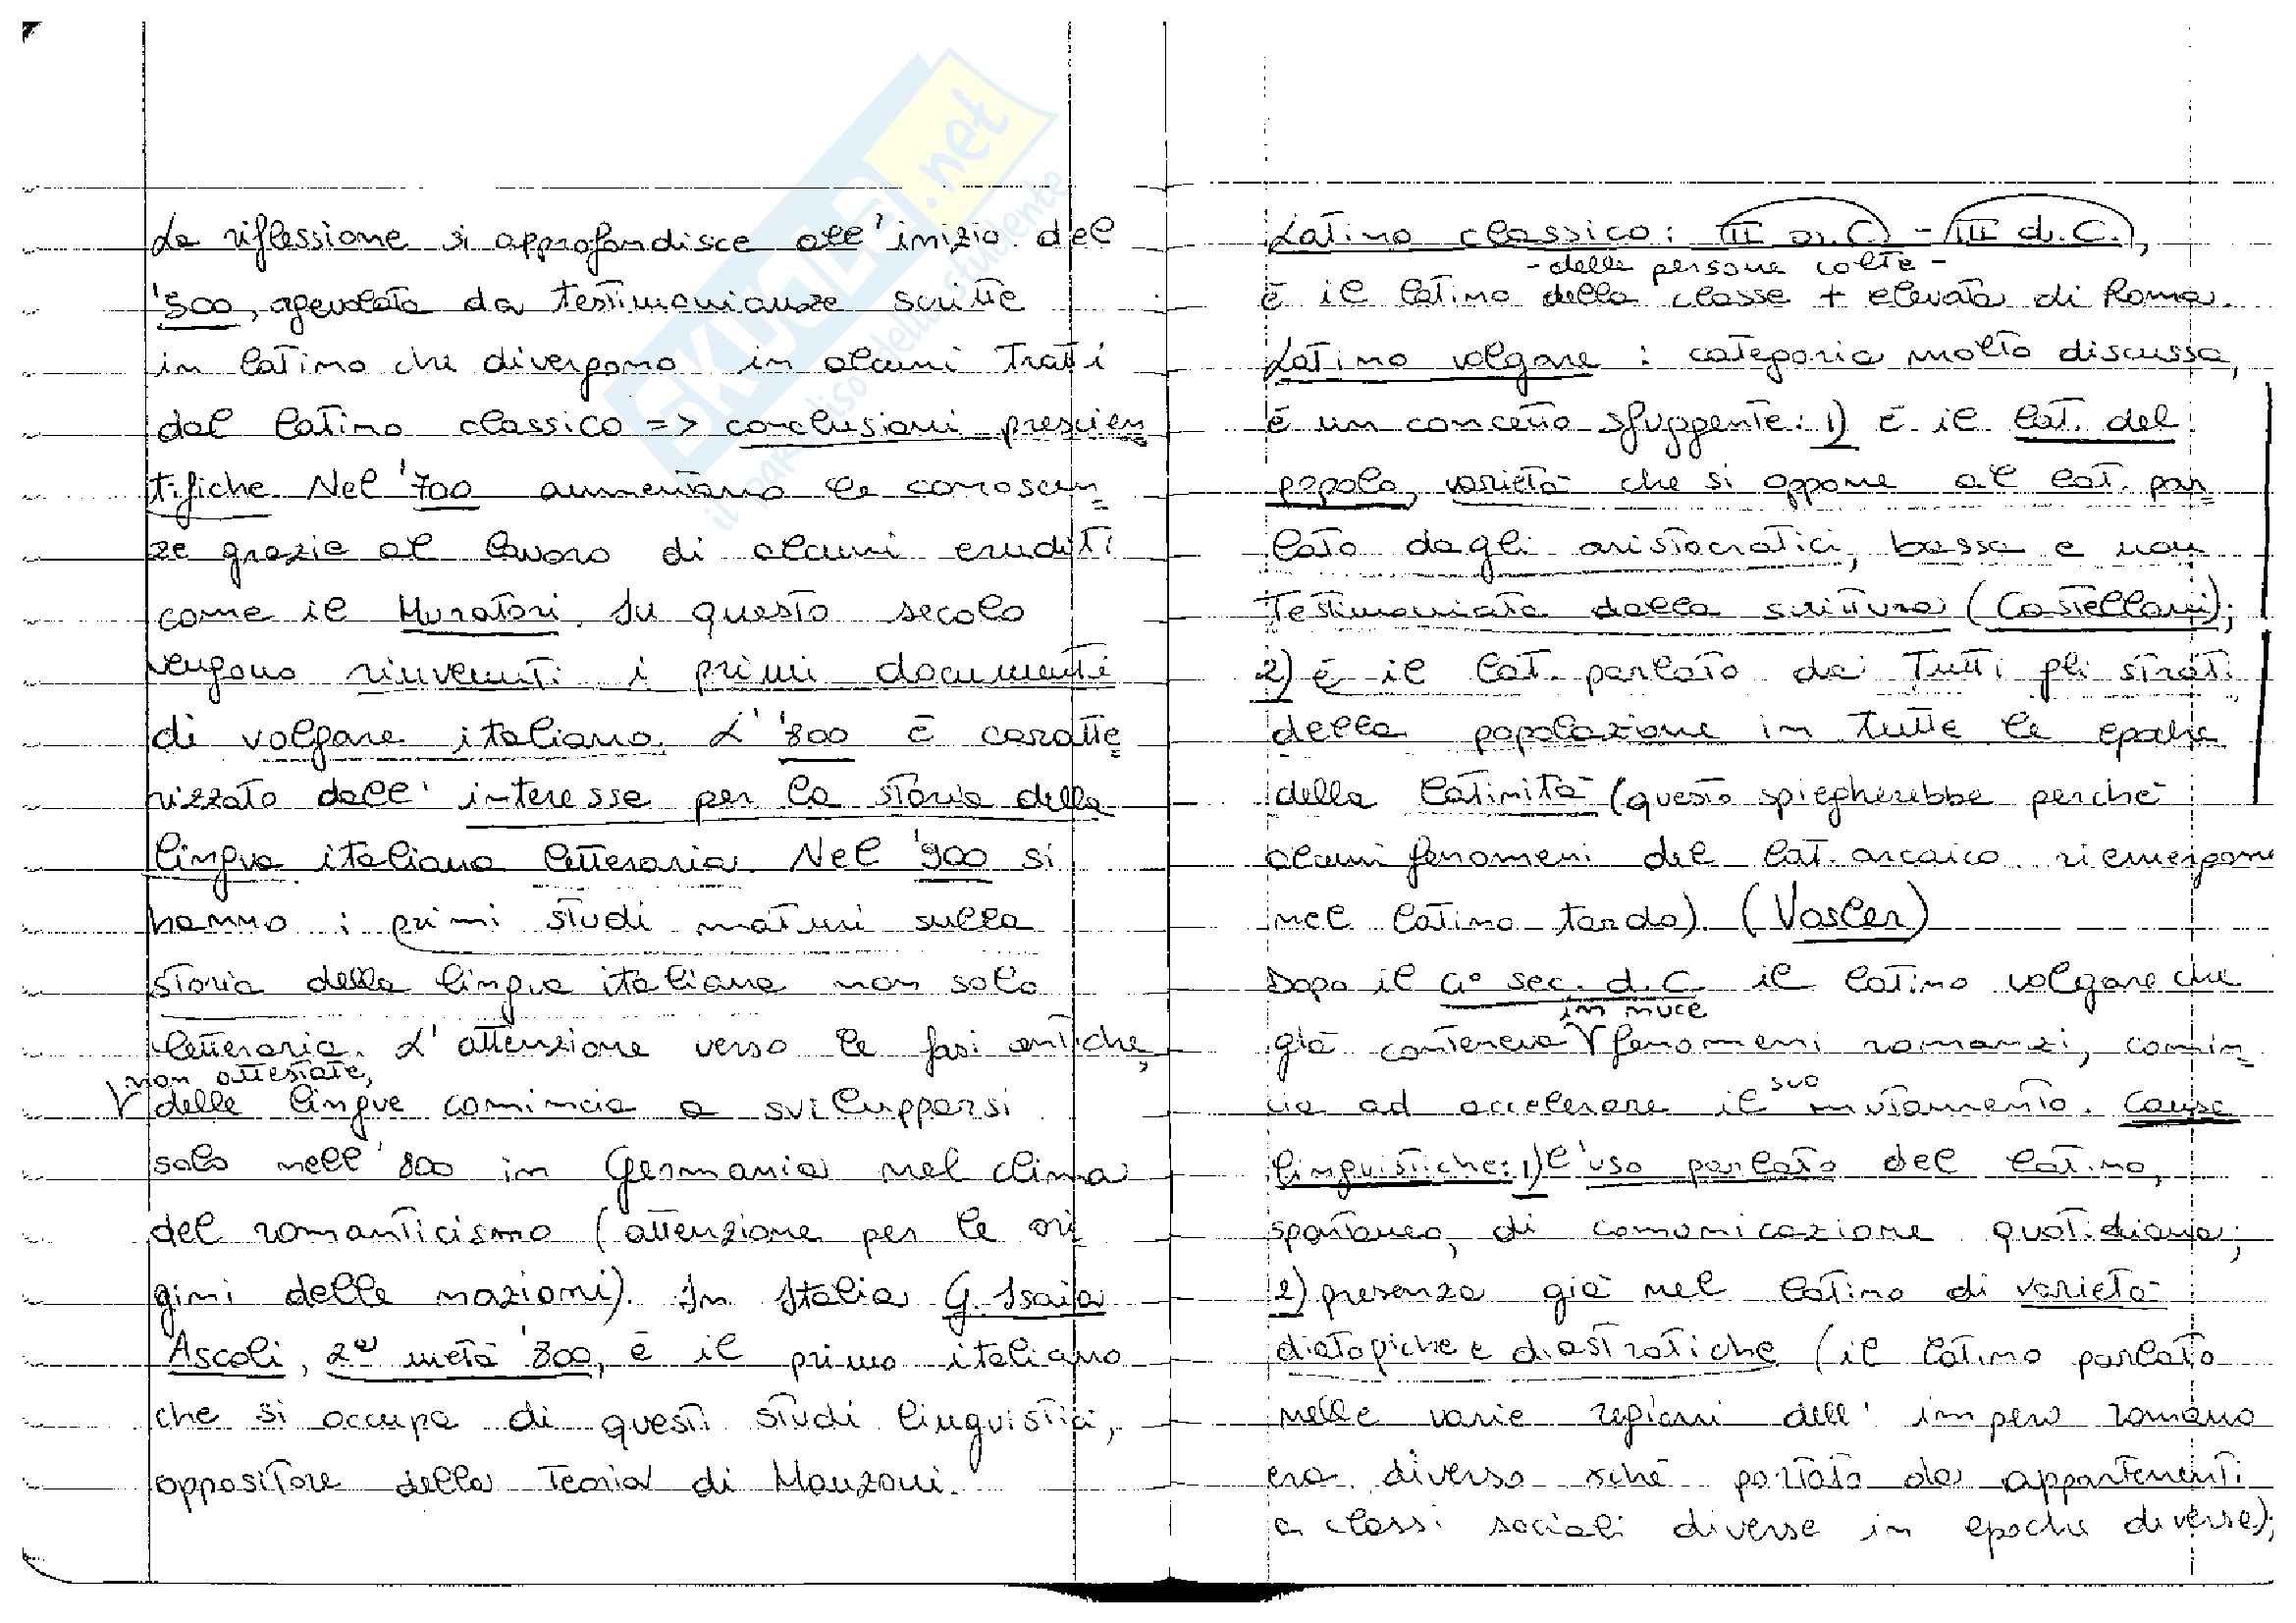 La riflessione si approfondisce all'inizio del
'500, agevolata da testimonianze scritte
in latino che divergono in alcuni tratti
dal latino classico => conclusioni prescien
tifiche Nel '700 aumentano le conoscen-
ze grazie al lavoro di alcuni eruditi
come il Muratori. In questo secolo
vengono rinvenuti i primi documenti
di volgare italiano. L''800 è caratte
rizzato dall'interesse per la storia della
lingua italiana letteraria. Nel '900 si
hanno i primi studi maturi sulla
storia della lingua italiana non solo
letteraria. L'attenzione verso le fasi antiche,
non attestate,
V delle lingue comincia a svilupparsi
solo nell'800 in Germania nel clima
del romanticismo (attenzione per le ori
gini delle nazioni). In Italia G. Isaia
Ascoli, 2ª metà '800, è il primo italiano
che si occupa di questi studi linguistici,
oppositore della teoria di Manzoni.
Latino classico: III a.C. - III d.C.,
- delle persone colte -
è il latino della classe + elevata di Roma.
Latino volgare: categoria molto discussa,
è un concetto sfuggente: 1) È il lat. del
popolo, varietà che si oppone al lat. par-
lato dagli aristocratici, bassa e non
testimoniata dalla scrittura (Castellani);
2) è il lat. parlato da tutti gli strati
della popolazione in tutte le epoche
della latinità (questo spiegherebbe perché
alcuni fenomeni del lat. arcaico riemergono
nel latino tardo). (Vasler)
Dopo il 4° sec. d.C. il latino volgare che
in nuce
già conteneva V fenomeni romanzi, comin-
suo
cia ad accelerare il mutamento. Cause
linguistiche: 1) l'uso parlato del latino,
spontaneo, di comunicazione quotidiana;
2) presenza già nel latino di varietà
diatopiche e diastratiche (il latino parlato
nelle varie regioni dell'impero romano
era diverso xché portato da appartenenti
a classi sociali diverse in epoche diverse);
SKUOLA.net
il paradiso dello studente